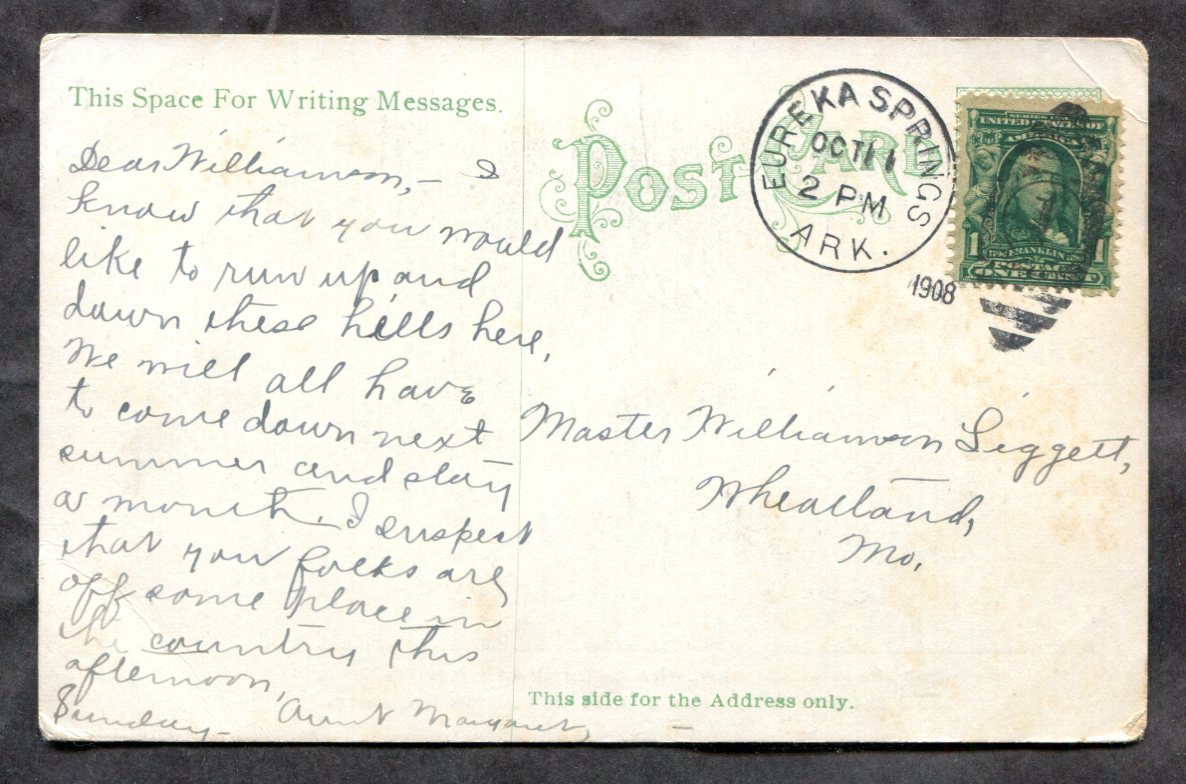 This Space For Writing Messages.
Dear Williamson,- I
know that you would
like to run up and
down these hills here,
We will all have
to come down next
summer and stay
a month. I suspect
that you folks are
off some place in
the country this
afternoon,
Sunday- Aunt Margaret,
POST CARD
EUREKA SPRINGS
OCT 11
2 PM
ARK.
1908
SERIES 1902
UNITED STATES OF
AMERICA
1 FRANKLIN 1
POSTAGE
ONE CENT
Master Williamson Liggett,
Wheatland,
Mo.
This side for the Address only.